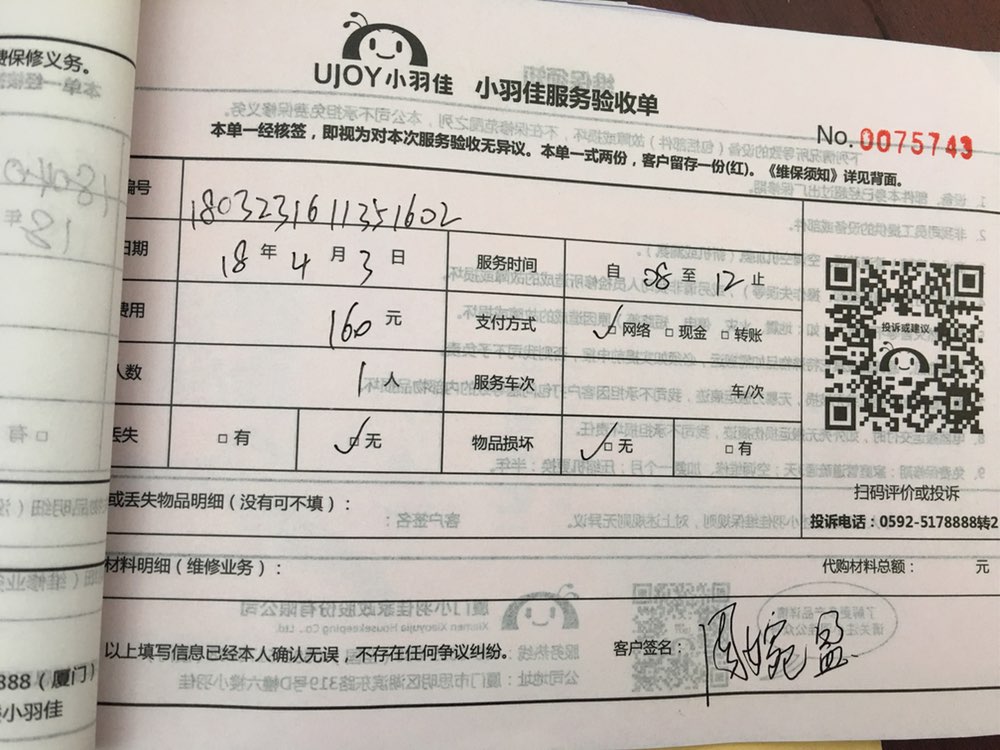 费保修义务。
UJOY小羽佳 小羽佳服务验收单
No.0075743
本单一经核签，即视为对本次服务验收无异议。本单一式两份，客户留存一份(红)。《维保须知》详见背面。
编号 180323161135 1602
日期 18年4月3日 服务时间 自08至12止
费用 160元 支付方式 ✓□网络 □现金 □转账
人数 1人 服务车次 车/次
丢失 □有 ✓□无 物品损坏 ✓□无 □有
投诉或建议
扫码评价或投诉
投诉电话：0592-5178888转2
或丢失物品明细（没有可不填）：
材料明细（维修业务）： 代购材料总额： 元
以上填写信息已经本人确认无误，不存在任何争议纠纷。 客户签名：周婉盈
888（厦门）
小羽佳